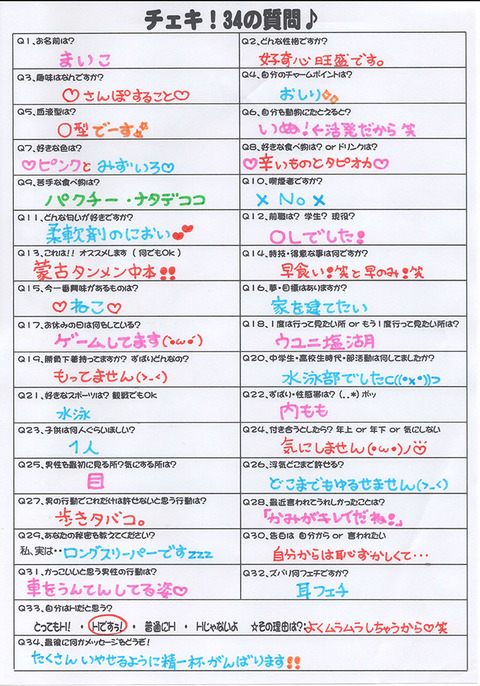 チェキ！34の質問♪
Q1、お名前は?
まいこ
Q2、どんな性格ですか?
好奇心旺盛です。
Q3、趣味はなんですか?
♡さんぽすること♡
Q4、自分のチャームポイントは?
おしり
Q5、血液型は?
O型でーす
Q6、自分も動物にたとえると?
いぬ!←活発だから 笑
Q7、好きな色は?
♡ピンクと みずいろ♡
Q8、好きな食べ物は? or ドリンクは?
♡辛いものとタピオカ♡
Q9、苦手な食べ物は?
パクチー・ナタデココ
Q10、喫煙者ですか?
× No ×
Q11、どんな匂いが好きですか?
柔軟剤のにおい
Q12、前職は? 学生? 現役?
OLでした!
Q13、これは!! オススメします (何でもOk)
蒙古タンメン中本!!
Q14、特技・得意な事は何ですか?
早食い!笑と早のみ!笑
Q15、今一番興味があるものは?
♡ねこ♡
Q16、夢・目標はありますか?
家を建てたい
Q17、お休みの日は何もしている?
ゲームしてます(・ω・)
Q18、1度は行って見たい所 or もう1度行って見たい所は?
ウユニ塩湖
Q19、勝負下着持ってますか? ずばいどんなの?
もってません(>-<)
Q20、中学生・高校生時代・部活動は何してましたか?
水泳部でしたc((・x・))っ
Q21、好きなスポーツは? 観戦でもOk
水泳
Q22、ずばい・性感帯は? (..*)ポッ
内もも
Q23、子供は何人ぐらいほしい?
1人
Q24、付き合うとしたら? 年上 or 年下 or 気にしない
気にしません(・ω・)ノ♡
Q25、男性も最初に見る所?気にする所は?
目
Q26、浮気どこまで許せる?
どこまでもゆるせません(>-<)
Q27、男の行動でこれだけは許せないと思う行動は?
歩きタバコ。
Q28、最近言われてうれしかったことは?
「かみがキレイだね!」
Q29、あなたの秘密も教えてください?
私、実は・・ロングスリーパーですzzz
Q30、告白は 自分から or 言われたい
自分からは恥ずかしくて…
Q31、かっこいいと思う男性の行動は?
車をうんてんしてる姿♡
Q32、ズバリ何フェチですか?
耳フェチ
Q33、自分はHだと思う?
とってもH! ・ Hですう! ・ 普通にH ・ Hじゃないよ ☆その理由は? よくムラムラしちゃうから♡笑
Q34、最後に何かメッセージもどうぞ!
たくさんいやせるように精一杯がんばります!!